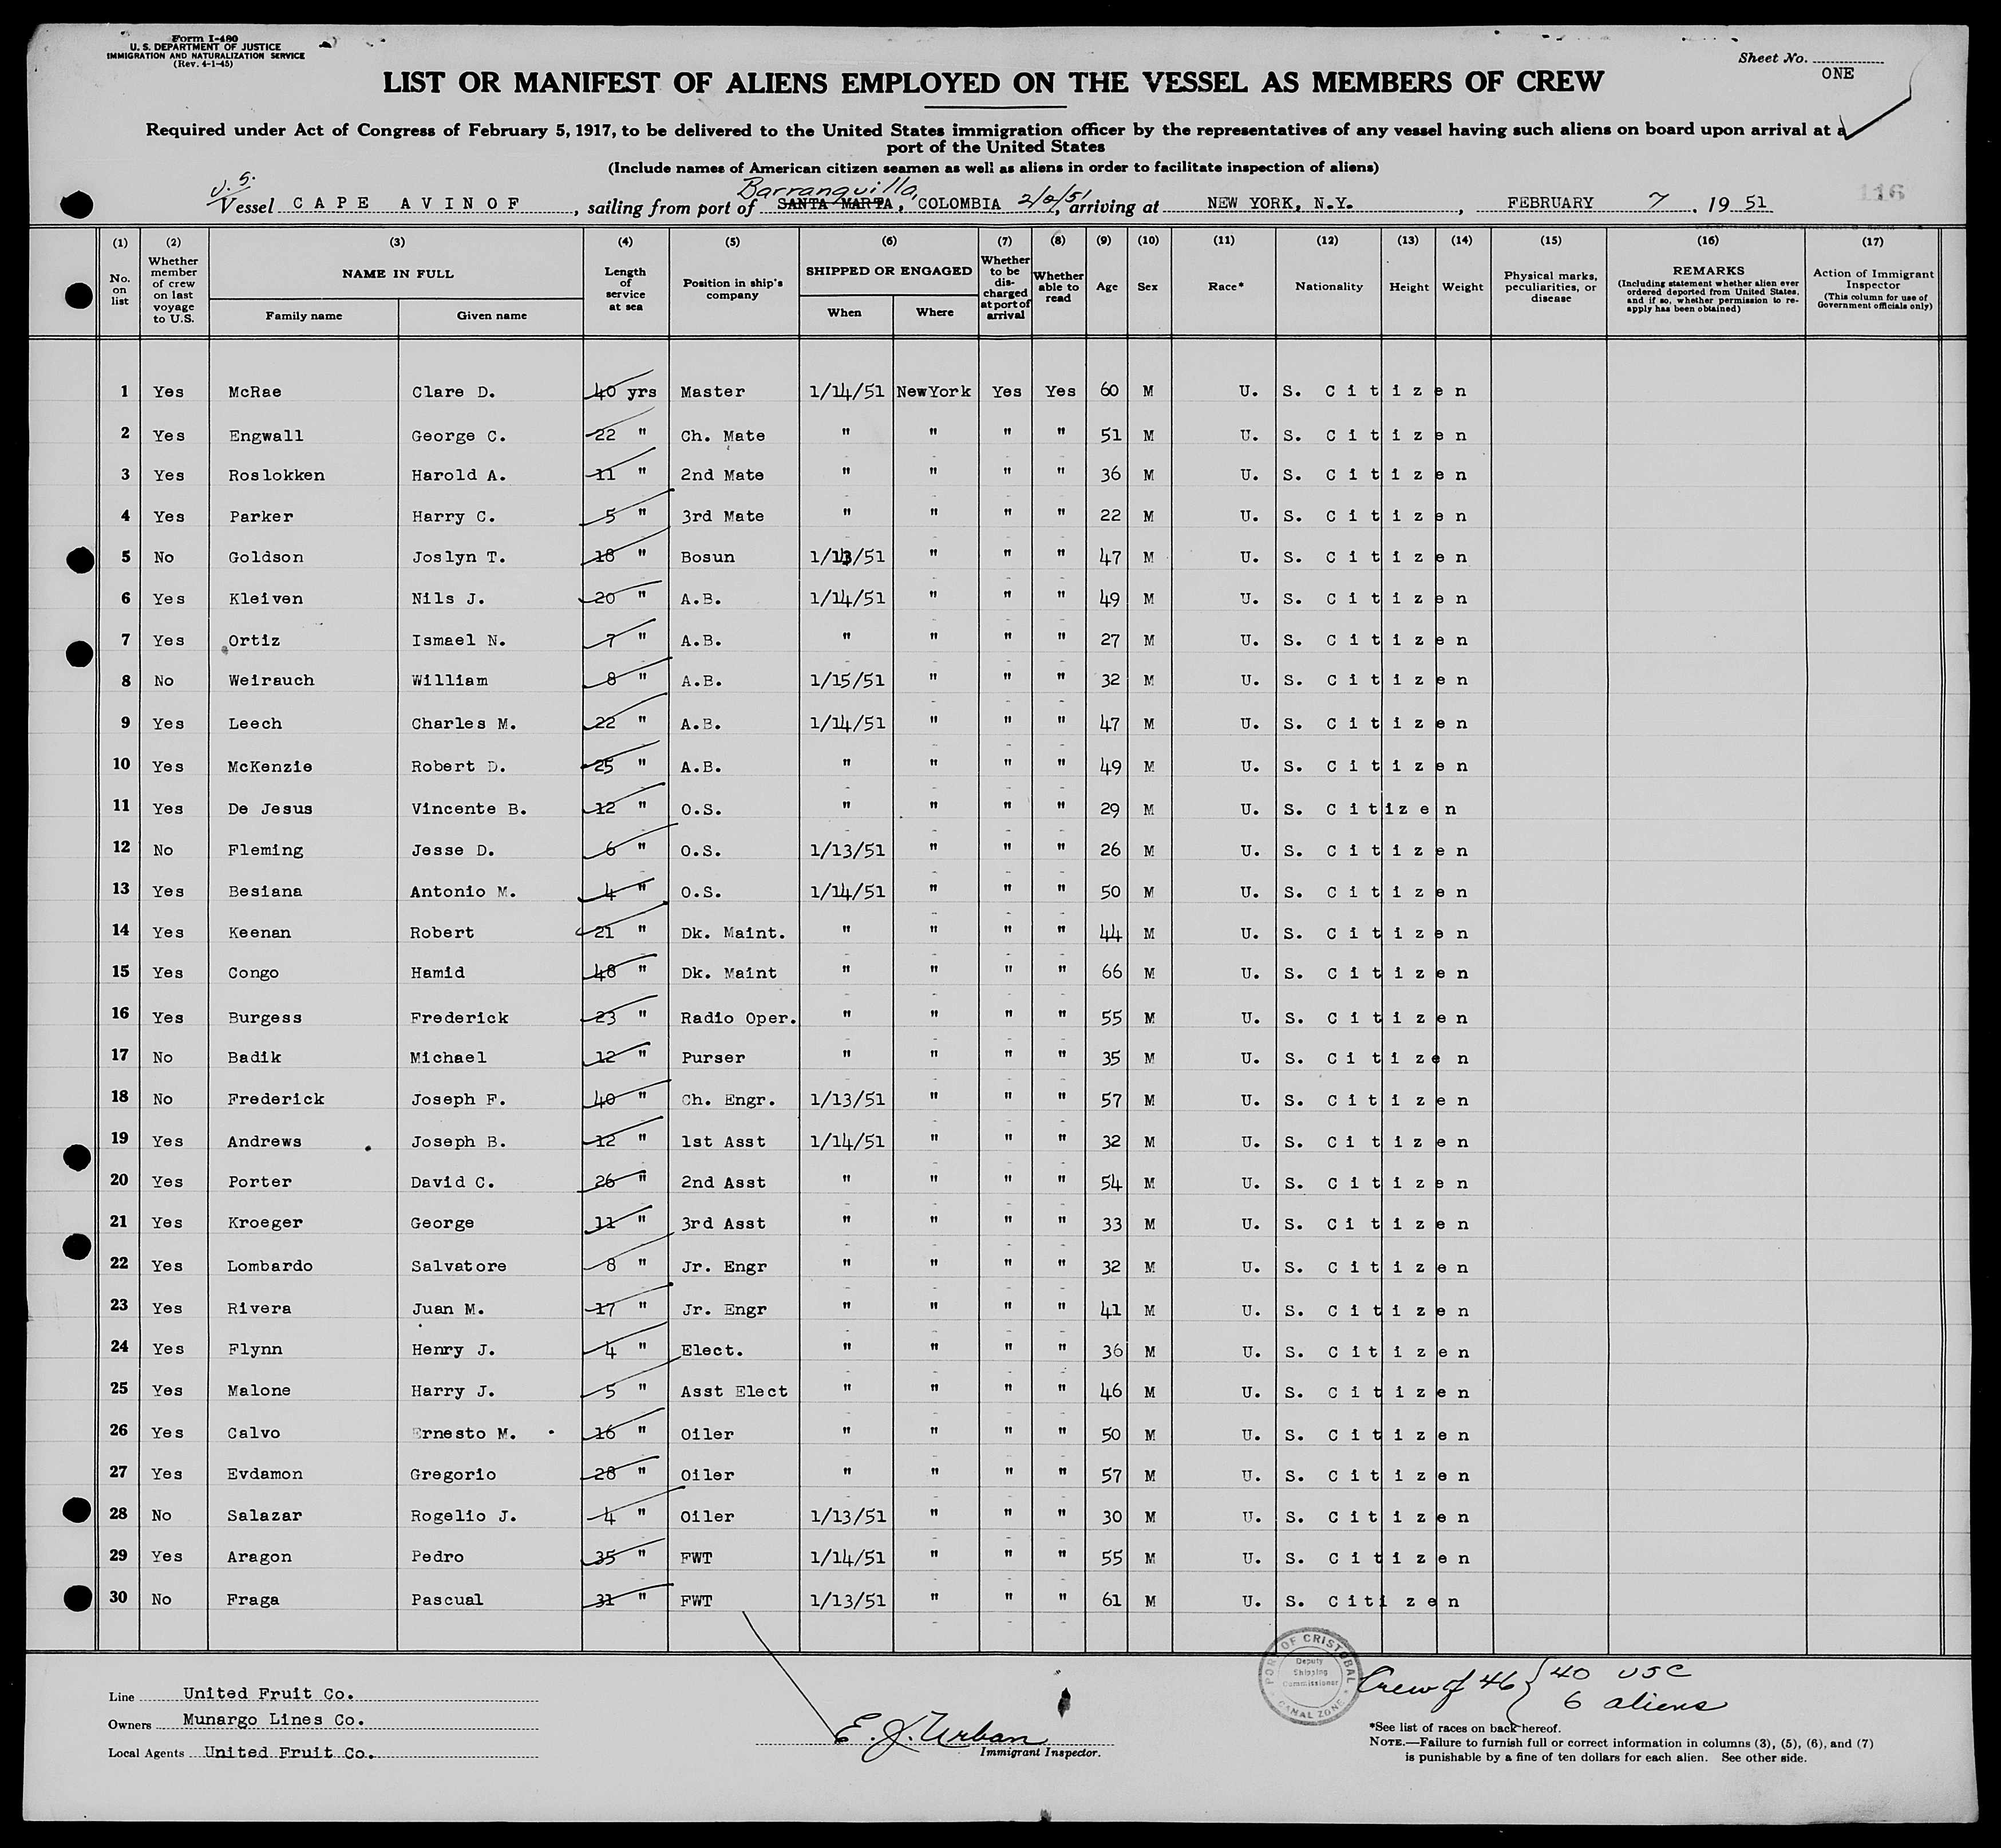 Form I-480
U. S. DEPARTMENT OF JUSTICE
IMMIGRATION AND NATURALIZATION SERVICE
(Rev. 4-1-45)
Sheet No. ONE
LIST OR MANIFEST OF ALIENS EMPLOYED ON THE VESSEL AS MEMBERS OF CREW
Required under Act of Congress of February 5, 1917, to be delivered to the United States immigration officer by the representatives of any vessel having such aliens on board upon arrival at a
port of the United States
(Include names of American citizen seamen as well as aliens in order to facilitate inspection of aliens)
U.S. Barranquilla,
Vessel CAPE AVINOF, sailing from port of SANTA MARTA, COLOMBIA 2/2/51, arriving at NEW YORK, N.Y., FEBRUARY 7, 1951
116
(1) No. on list (2) Whether member of crew on last voyage to U.S. (3) NAME IN FULL Family name Given name (4) Length of service at sea (5) Position in ship's company (6) SHIPPED OR ENGAGED When Where (7) Whether to be discharged at port of arrival (8) Whether able to read (9) Age (10) Sex (11) Race* (12) Nationality (13) Height (14) Weight (15) Physical marks, peculiarities, or disease (16) REMARKS (Including statement whether alien ever ordered deported from United States, and if so, whether permission to reapply has been obtained) (17) Action of Immigrant Inspector (This column for use of Government officials only)
1 Yes McRae Clare D. 40 yrs Master 1/14/51 NewYork Yes Yes 60 M U. S. Citizen
2 Yes Engwall George C. 22 " Ch. Mate " " " " 51 M U. S. Citizen
3 Yes Roslokken Harold A. 11 " 2nd Mate " " " " 36 M U. S. Citizen
4 Yes Parker Harry C. 5 " 3rd Mate " " " " 22 M U. S. Citizen
5 No Goldson Joslyn T. 18 " Bosun 1/13/51 " " " 47 M U. S. Citizen
6 Yes Kleiven Nils J. 20 " A.B. 1/14/51 " " " 49 M U. S. Citizen
7 Yes Ortiz Ismael N. 7 " A.B. " " " " 27 M U. S. Citizen
8 No Weirauch William 8 " A.B. 1/15/51 " " " 32 M U. S. Citizen
9 Yes Leech Charles M. 22 " A.B. 1/14/51 " " " 47 M U. S. Citizen
10 Yes McKenzie Robert D. 25 " A.B. " " " " 49 M U. S. Citizen
11 Yes De Jesus Vincente B. 12 " O.S. " " " " 29 M U. S. Citizen
12 No Fleming Jesse D. 6 " O.S. 1/13/51 " " " 26 M U. S. Citizen
13 Yes Besiana Antonio M. 4 " O.S. 1/14/51 " " " 50 M U. S. Citizen
14 Yes Keenan Robert 21 " Dk. Maint. " " " " 44 M U. S. Citizen
15 Yes Congo Hamid 48 " Dk. Maint " " " " 66 M U. S. Citizen
16 Yes Burgess Frederick 23 " Radio Oper. " " " " 55 M U. S. Citizen
17 No Badik Michael 12 " Purser " " " " 35 M U. S. Citizen
18 No Frederick Joseph F. 40 " Ch. Engr. 1/13/51 " " " 57 M U. S. Citizen
19 Yes Andrews Joseph B. 12 " 1st Asst 1/14/51 " " " 32 M U. S. Citizen
20 Yes Porter David C. 26 " 2nd Asst " " " " 54 M U. S. Citizen
21 Yes Kroeger George 11 " 3rd Asst " " " " 33 M U. S. Citizen
22 Yes Lombardo Salvatore 8 " Jr. Engr " " " " 32 M U. S. Citizen
23 Yes Rivera Juan M. 17 " Jr. Engr " " " " 41 M U. S. Citizen
24 Yes Flynn Henry J. 4 " Elect. " " " " 36 M U. S. Citizen
25 Yes Malone Harry J. 5 " Asst Elect " " " " 46 M U. S. Citizen
26 Yes Calvo Ernesto M. 16 " Oiler " " " " 50 M U. S. Citizen
27 Yes Evdamon Gregorio 28 " Oiler " " " " 57 M U. S. Citizen
28 No Salazar Rogelio J. 4 " Oiler 1/13/51 " " " 30 M U. S. Citizen
29 Yes Aragon Pedro 35 " FWT 1/14/51 " " " 55 M U. S. Citizen
30 No Fraga Pascual 31 " FWT 1/13/51 " " " 61 M U. S. Citizen
Line United Fruit Co.
Owners Munargo Lines Co.
Local Agents United Fruit Co.
E. J. Urban
Immigrant Inspector.
PORT OF CRISTOBAL
Deputy
Shipping
Commissioner
CANAL ZONE
Crew of 46 { 40 USC
6 aliens
*See list of races on back hereof.
NOTE.—Failure to furnish full or correct information in columns (3), (5), (6), and (7)
is punishable by a fine of ten dollars for each alien. See other side.